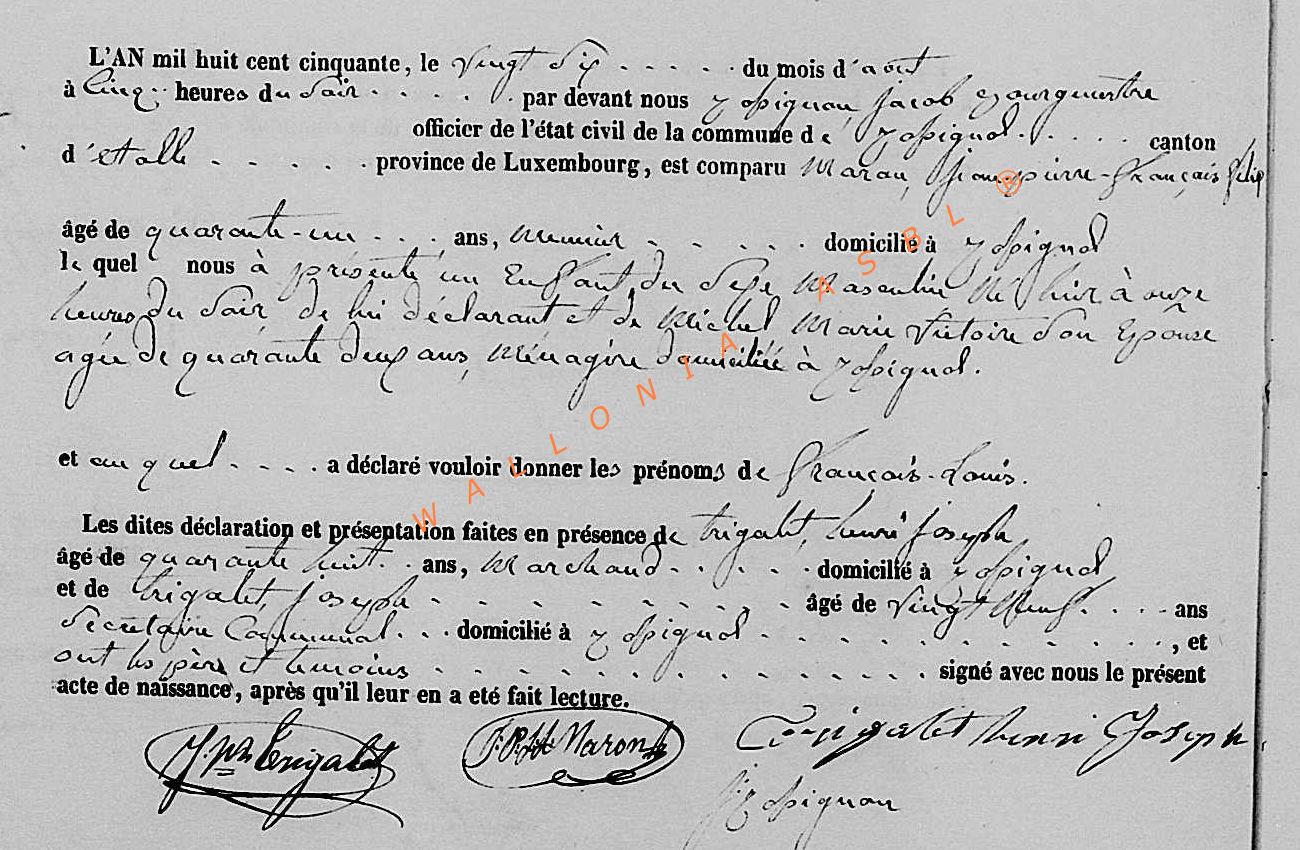 L'AN mil huit cent cinquante, le vingt six . . . . . du mois d'août
à Cinq heures du Soir . . . . . par devant nous Jacob Bourguemestre
officier de l'état civil de la commune de . . . . canton
d'étalle . . . . . province de Luxembourg, est comparu Maron, jean-pierre-françois
âgé de quarante-un . . . ans, meunier . . . . . domicilié à
le quel nous à présenté un Enfant du Sexe Masculin Né hier à onze
heures du Soir, de lui déclarant et de Michel Marie Victoire Son Epouse
agée de quarante deux ans, Ménagère domiciliée à
et au quel . . . . a déclaré vouloir donner les prénoms de François-Louis.
Les dites déclaration et présentation faites en présence de trigalet, henri joseph
âgé de quarante huit . . ans, Marchand . . . . . domicilié à
et de trigalet, joseph . . . . . . . . . . âgé de vingt Neuf . . . . ans
Secrétaire Communal . . . domicilié à . . . . . . . . . . . . , et
ont les père et temoins . . . . . . . . . . . . . signé avec nous le présent
acte de naissance, après qu'il leur en a eté fait lecture.
J. ph Trigalet
Maron
Trigalet henri Joseph
WALLONIA ASBL ®